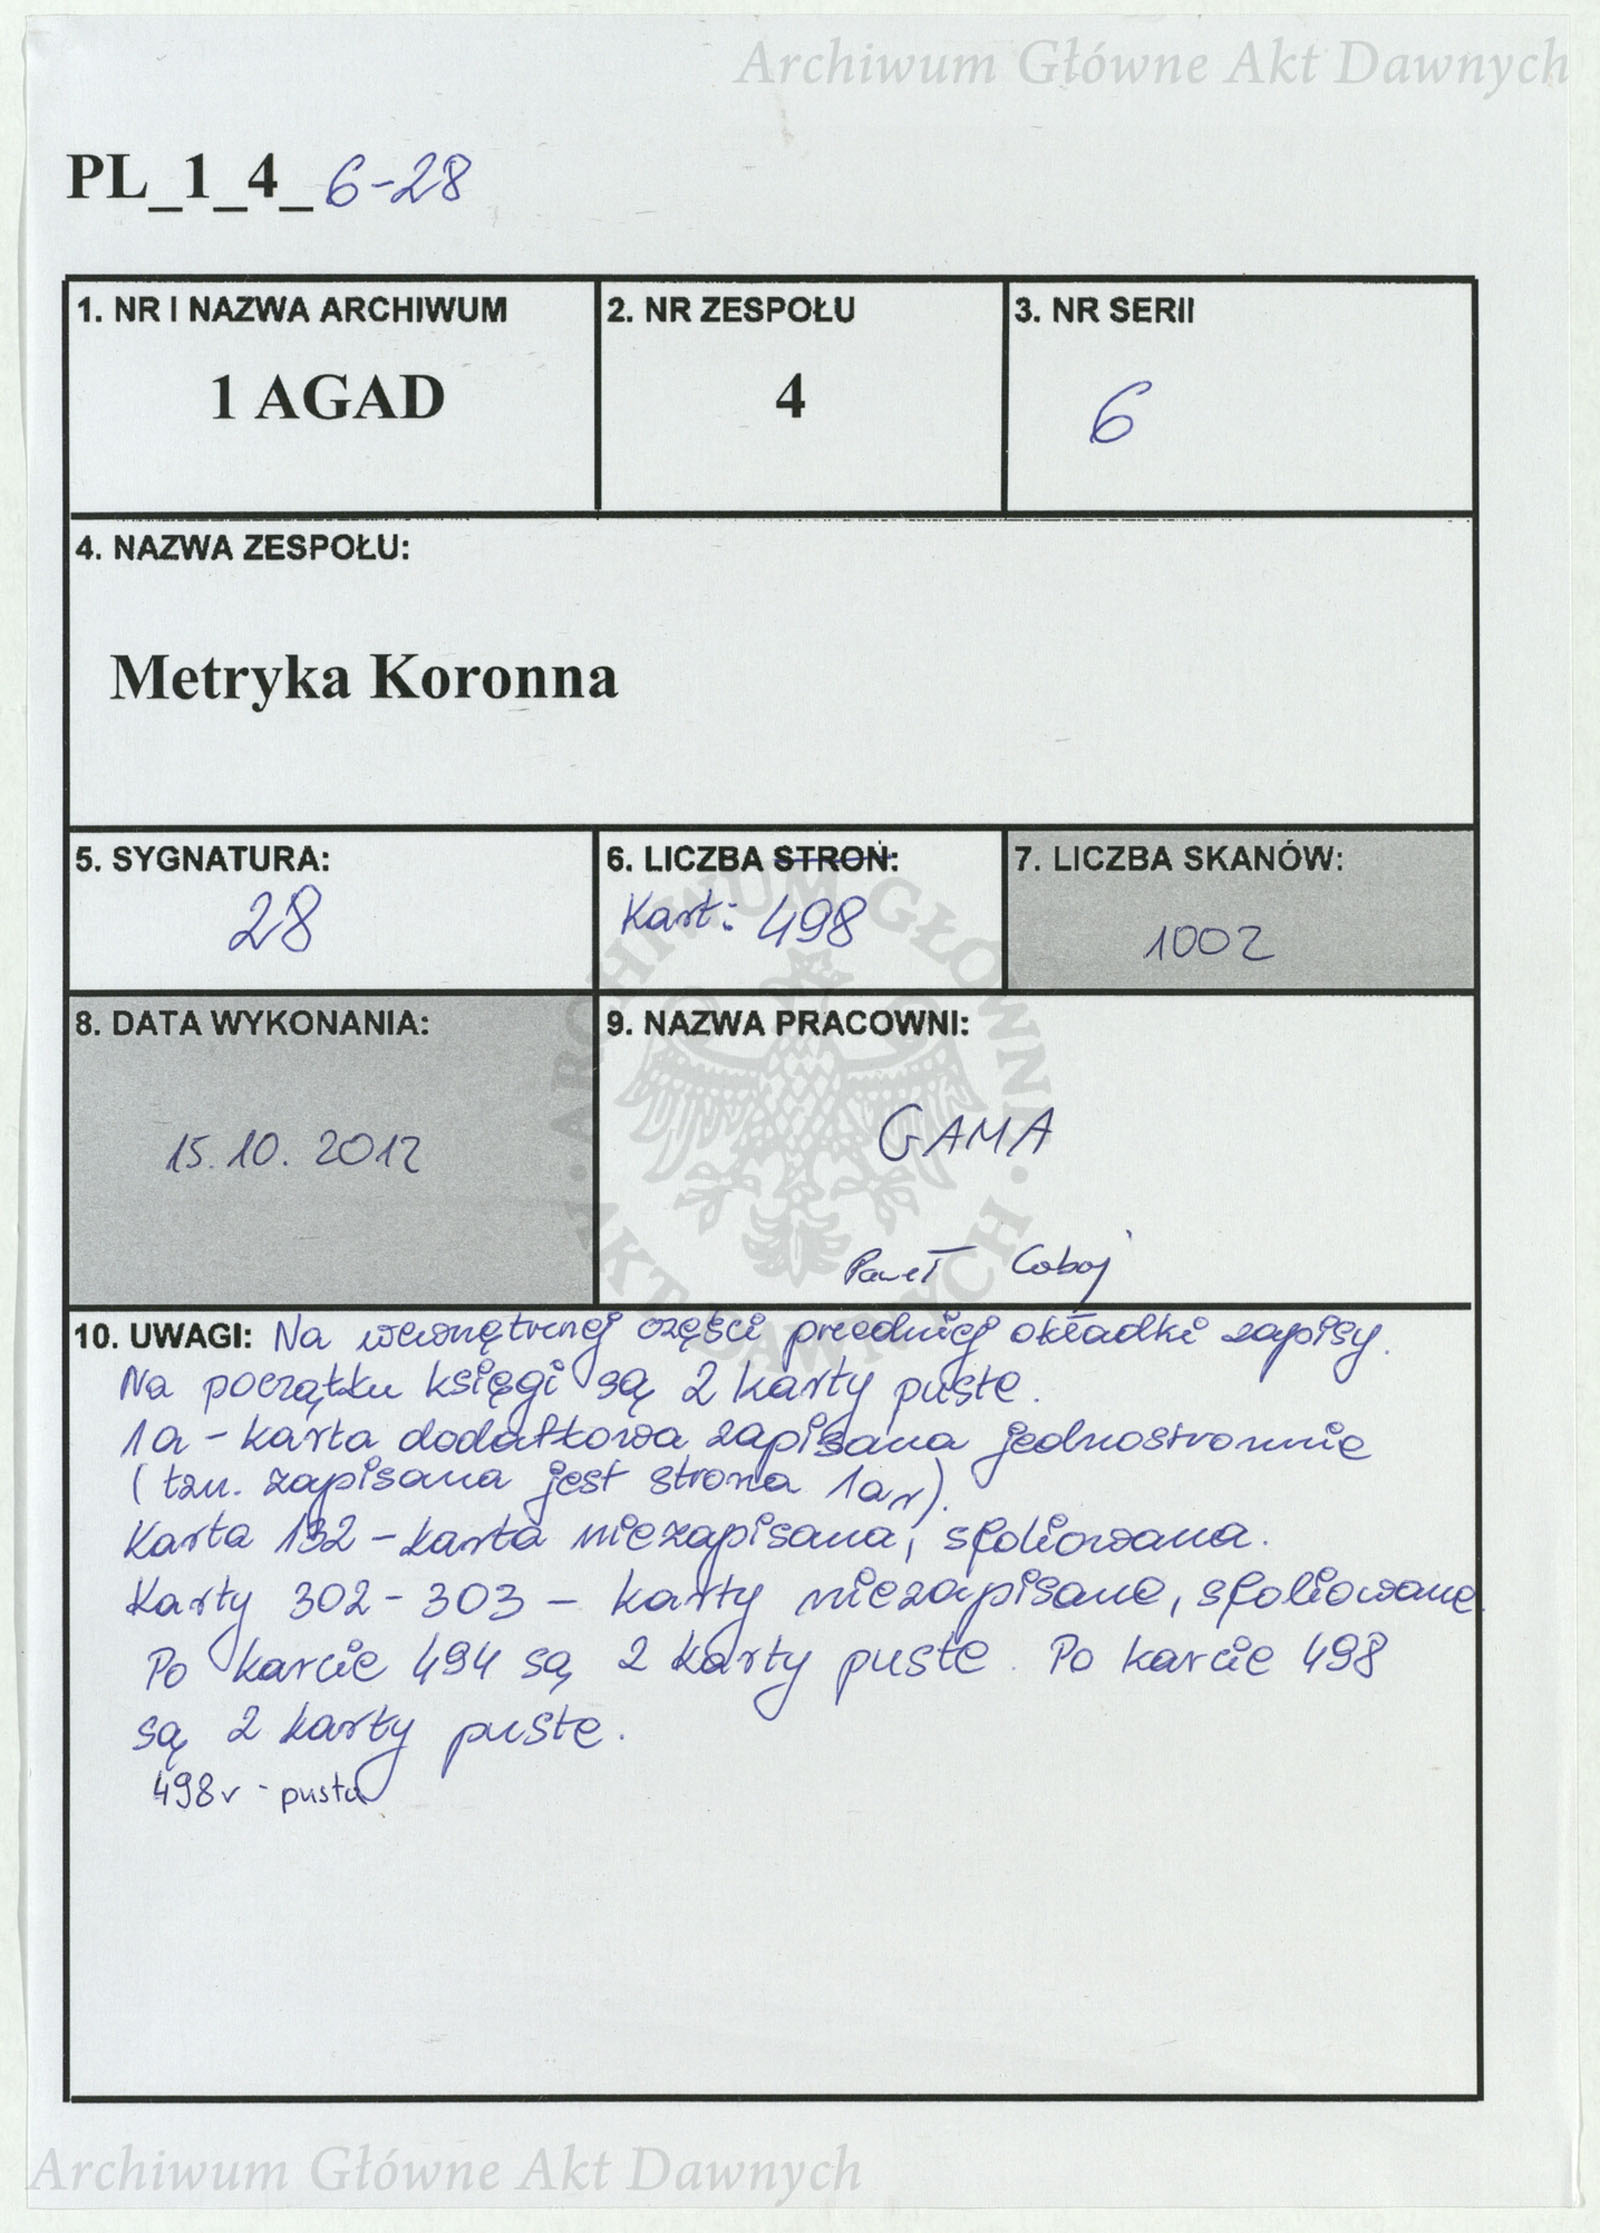 Archiwum Główne Akt Dawnych
PL_1_4_6-28
1. NR I NAZWA ARCHIWUM
1 AGAD
2. NR ZESPOŁU
4
3. NR SERII
6
4. NAZWA ZESPOŁU:
Metryka Koronna
5. SYGNATURA:
28
6. LICZBA STRON:
Kart: 498
7. LICZBA SKANÓW:
1002
8. DATA WYKONANIA:
15.10.2012
9. NAZWA PRACOWNI:
GAMA
Paweł
10. UWAGI: Na wewnętrznej części przedniej okładki zapisy.
Na początku księgi są 2 karty puste.
1a - karta dodatkowa zapisana jednostronnie
(tzn. zapisana jest strona 1ar).
Karta 132 - karta niezapisana, sfoliowana.
Karty 302-303 - karty niezapisane, sfoliowane.
Po karcie 494 są 2 karty puste. Po karcie 498
są 2 karty puste.
498v - pusta
ARCHIWUM GŁÓWNE · AKT DAWNYCH ·
Archiwum Główne Akt Dawnych